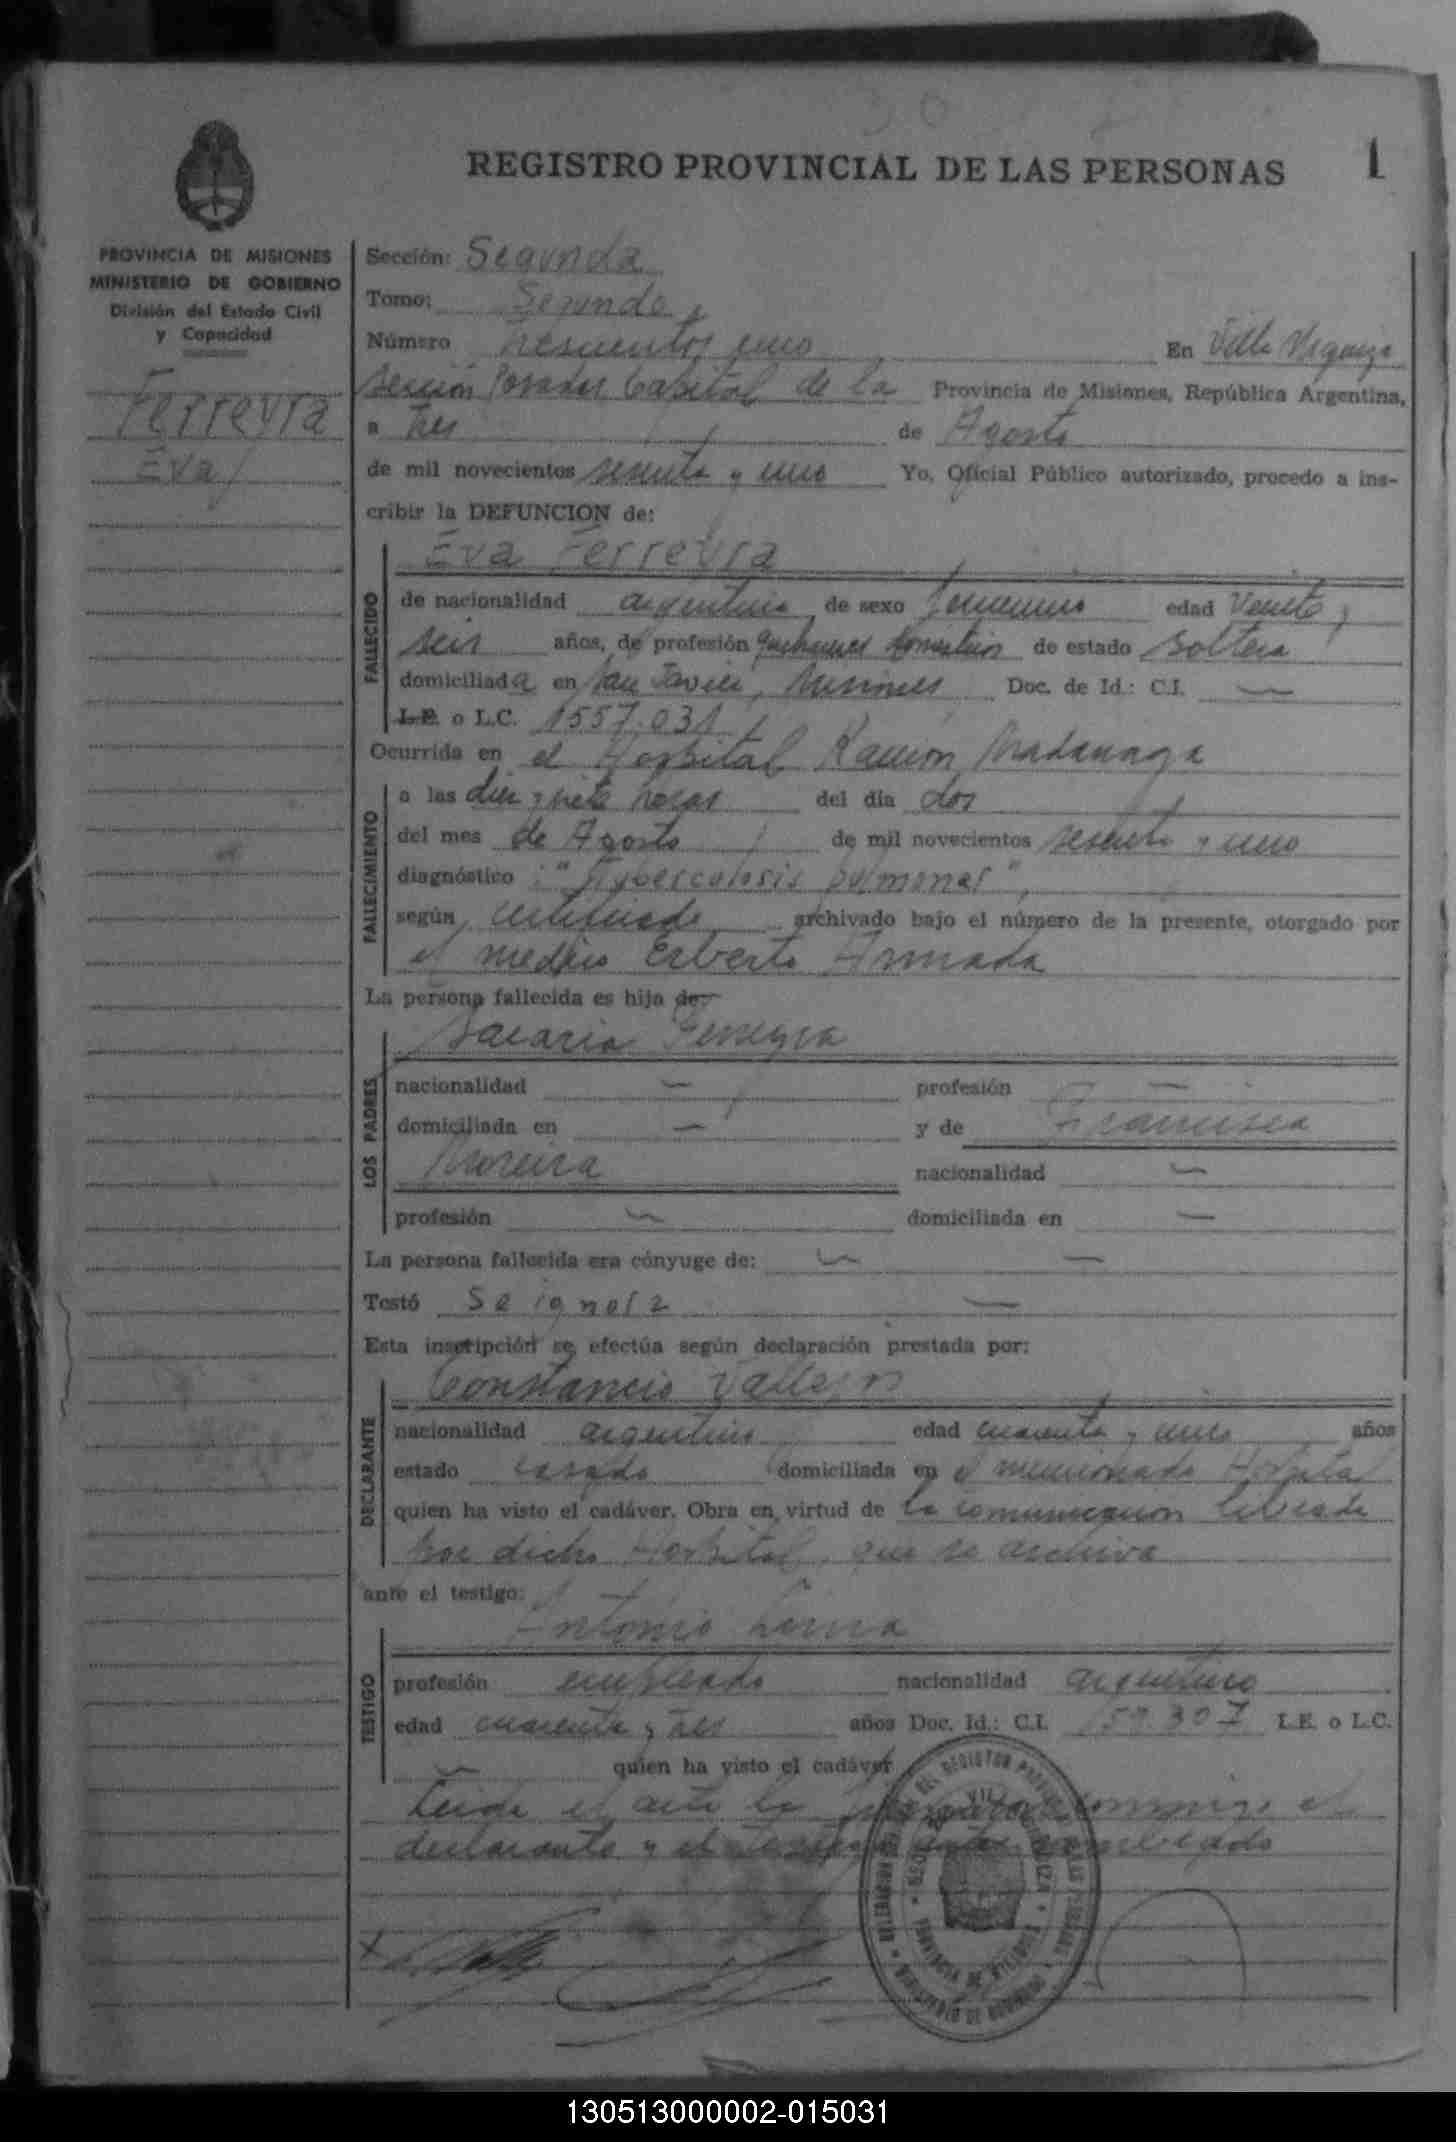 REGISTRO PROVINCIAL DE LAS PERSONAS 1
PROVINCIA DE MISIONES
MINISTERIO DE GOBIERNO
División del Estado Civil
y Capacidad
Ferreyra
Eva
Sección: Segunda
Tomo: Segundo
Número trescientos uno En Villa Urquiza
Sección Posadas Capital de la Provincia de Misiones, República Argentina,
a tres de Agosto
de mil novecientos sesenta y uno Yo, Oficial Público autorizado, procedo a ins-
cribir la DEFUNCION de:
Eva Ferreyra
FALLECIDO
de nacionalidad argentina de sexo femenino edad veinte y
seis años, de profesión quehaceres domésticos de estado soltera
domiciliada en San Javier, Misiones Doc. de Id.: C.I. —
L.E. o L.C. 1557.031
Ocurrida en el Hospital Ramón Madariaga
FALLECIMIENTO
a las diez y siete horas del día dos
del mes de Agosto de mil novecientos sesenta y uno
diagnóstico: "Tuberculosis pulmonar",
según certificado archivado bajo el número de la presente, otorgado por
el médico Erberto Armada
La persona fallecida es hija de:
LOS PADRES
Ferreyra
nacionalidad — profesión —
domiciliada en — y de Francisca
Moreira nacionalidad —
profesión — domiciliada en —
La persona fallecida era cónyuge de: — —
Testó Se ignora —
Esta inscripción se efectúa según declaración prestada por:
Constancio Vallejos
DECLARANTE
nacionalidad argentino edad cuarenta y uno años
estado casado domiciliada en el mencionado Hospital
quien ha visto el cadáver. Obra en virtud de la comunicación librada
por dicho Hospital, que se archiva
ante el testigo:
Antonio
TESTIGO
profesión empleado nacionalidad argentino
edad cuarenta y tres años Doc. Id.: C.I. 159.307 L.E. o L.C.
— quien ha visto el cadáver
Leída el acta la conmigo el
declarante y el testigo
130513000002-015031